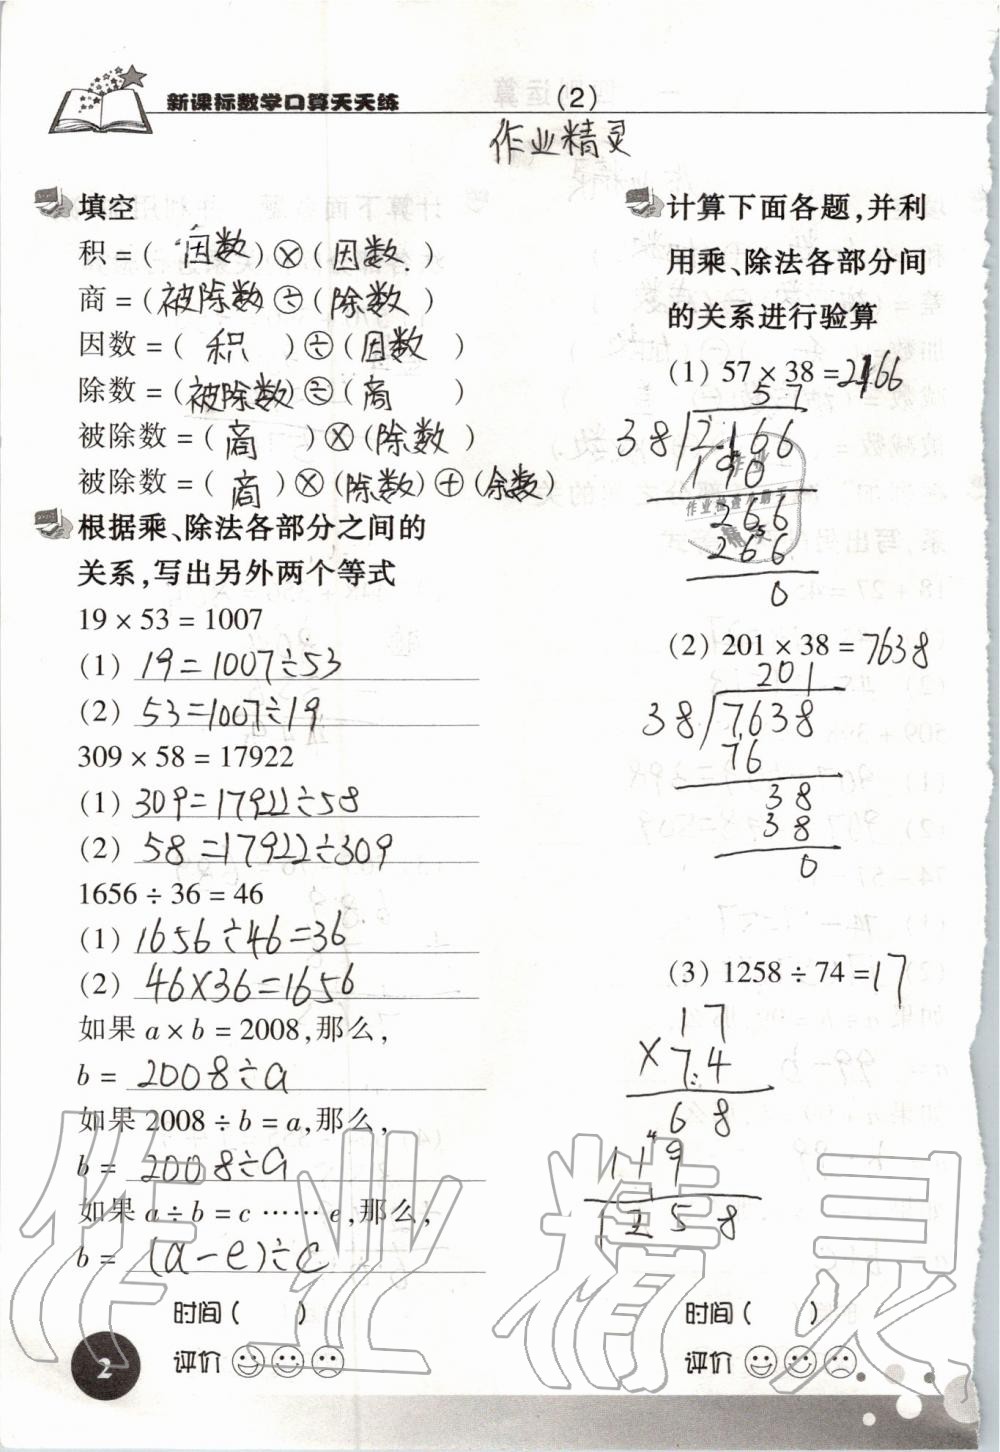 新课标数学口算天天练
(2)
作业精灵
填空
积=(因数)×(因数)
商=(被除数)÷(除数)
因数=(积)÷(因数)
除数=(被除数)÷(商)
被除数=(商)×(除数)
被除数=(商)×(除数)+(余数)
根据乘、除法各部分之间的
关系,写出另外两个等式
19×53=1007
(1) 19=1007÷53
(2) 53=1007÷19
309×58=17922
(1) 309=17922÷58
(2) 58=17922÷309
1656÷36=46
(1) 1656÷46=36
(2) 46×36=1656
如果a×b=2008,那么,
b=2008÷a
如果2008÷b=a,那么,
b=2008÷a
如果a÷b=c……e,那么,
b=(a-e)÷c
时间( )
评价
2
计算下面各题,并利
用乘、除法各部分间
的关系进行验算
(1) 57×38=2166
57
38 2166
190
266
266
0
(2) 201×38=7638
201
38 7638
76
38
38
0
(3) 1258÷74=17
17
×74
68
119
1258
时间( )
评价
作业精灵